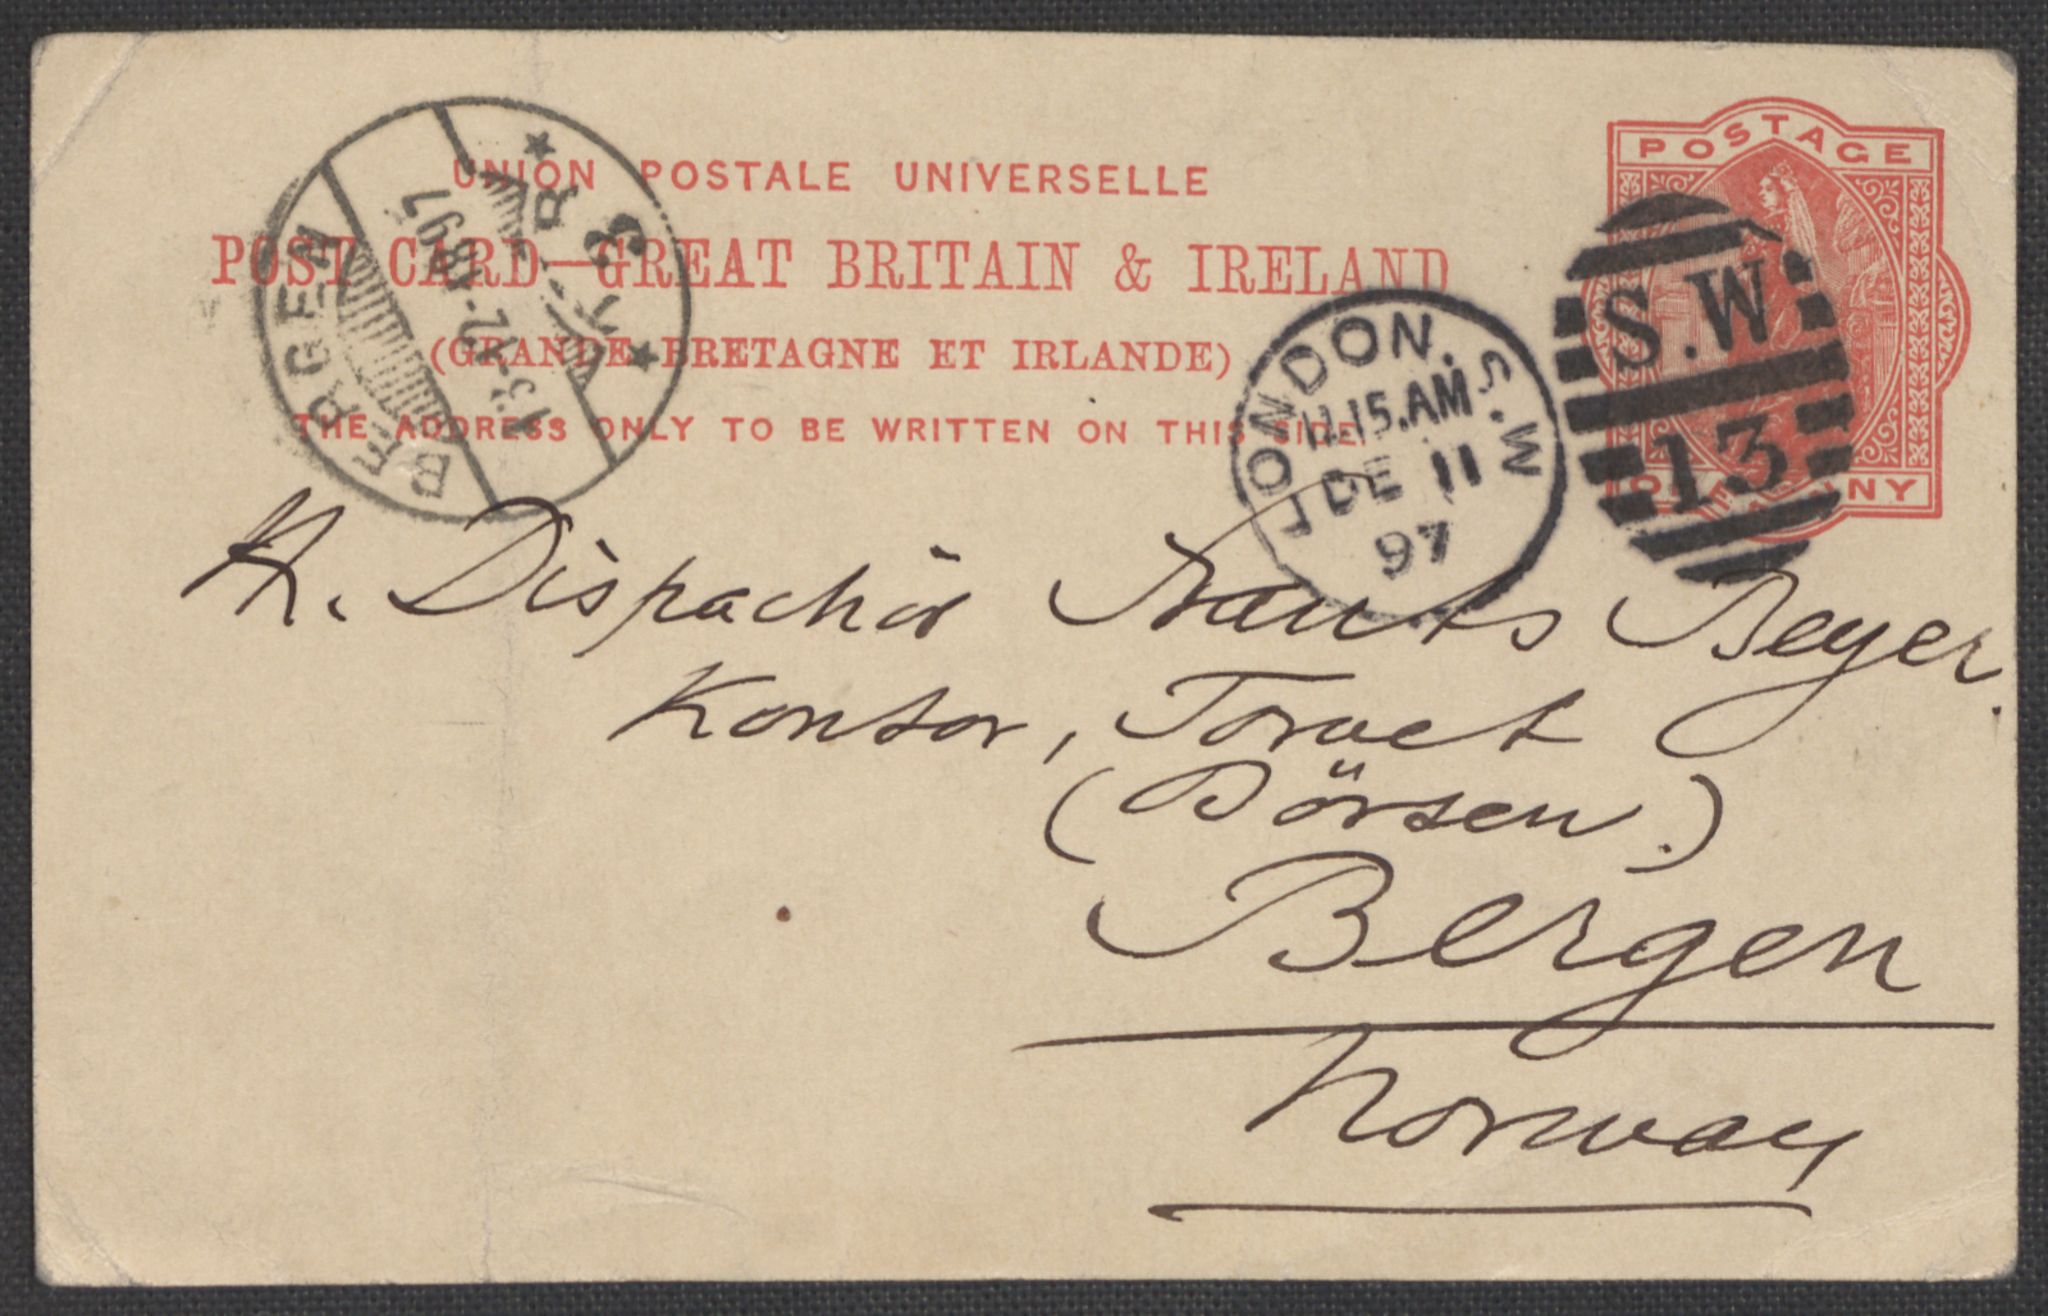 UNION POSTALE UNIVERSELLE
POST CARD—GREAT BRITAIN & IRELAND
(GRANDE BRETAGNE ET IRLANDE)
THE ADDRESS ONLY TO BE WRITTEN ON THIS SIDE
POSTAGE
ONE PENNY
BERGEN
13-12-1897
LONDON. S.W
11.15.AM
DE 11
97
S.W
13
H. Dispachör Frants Beyer.
Kontor, Torvet
(Börsen.)
Bergen
Norway